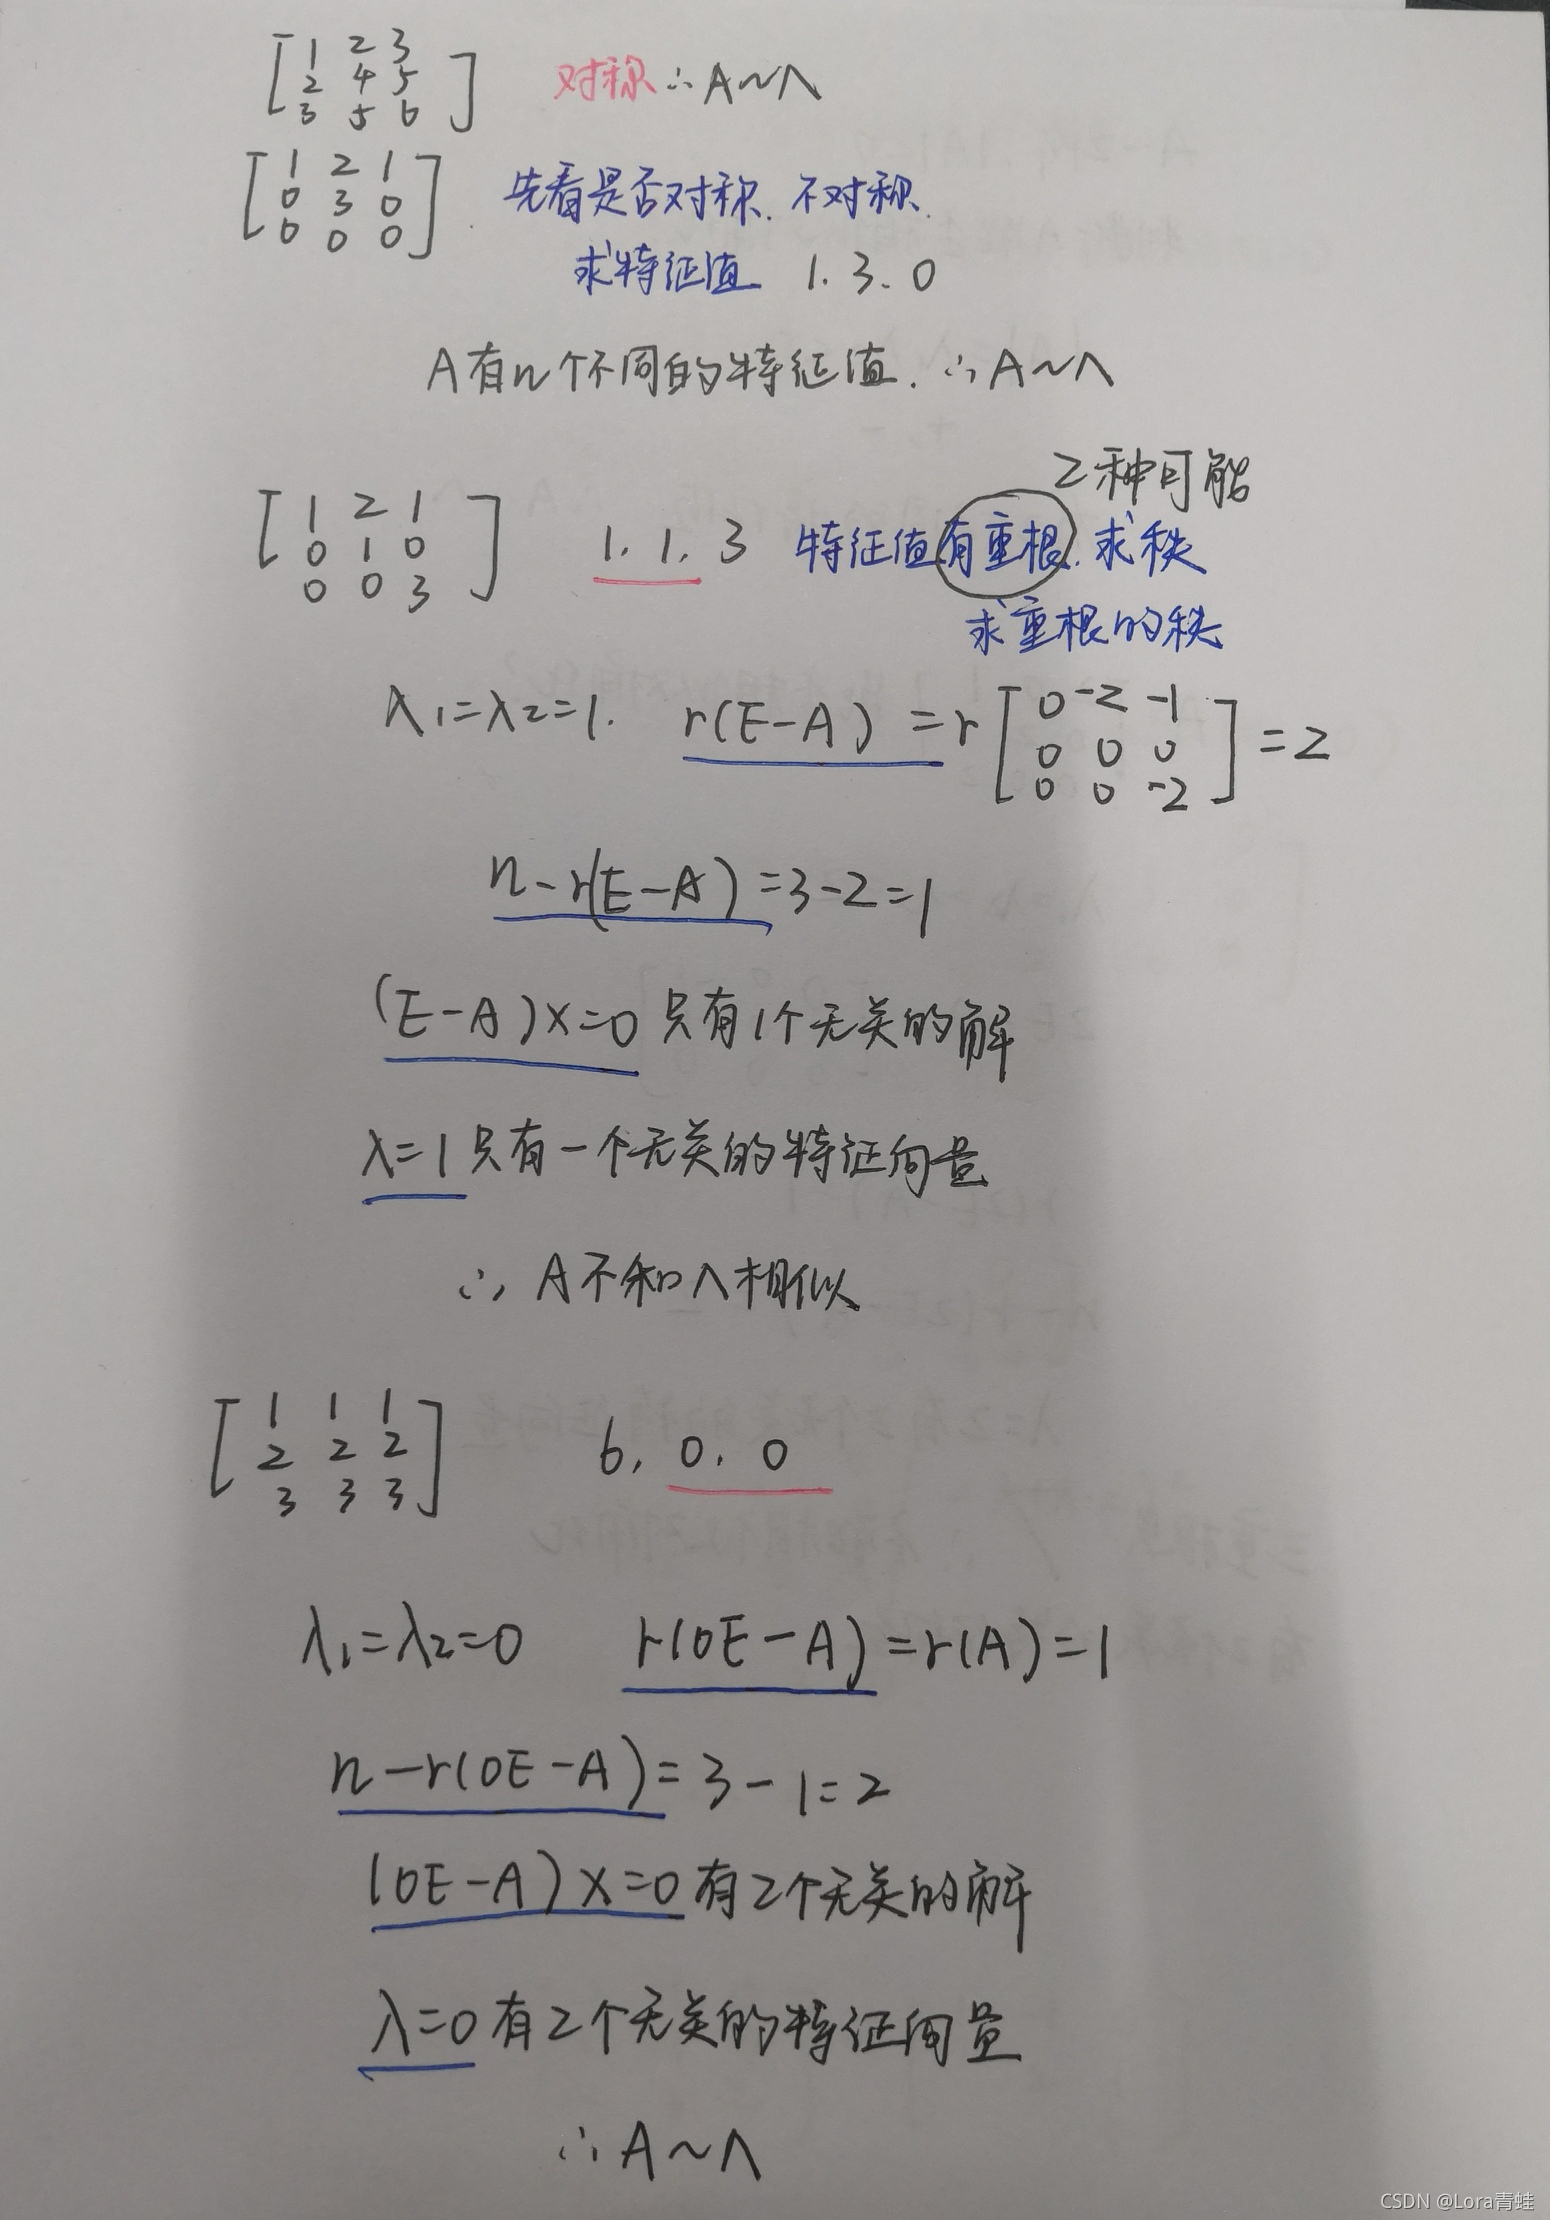 [1 2 3
2 4 5
3 5 6] 对称 ∴A~Λ
[1 2 1
0 3 0
0 0 0] 先看是否对称. 不对称.
求特征值 1. 3. 0
A有n个不同的特征值. ∴A~Λ
2种可能
[1 2 1
0 1 0
0 0 3] 1. 1. 3 特征值有重根. 求秩
求重根的秩
λ1=λ2=1. r(E-A) = r[0 -2 -1
0 0 0
0 0 -2] = 2
n-r(E-A)=3-2=1
(E-A)x=0 只有1个无关的解
λ=1只有一个无关的特征向量
∴ A不和Λ相似
[1 1 1
2 2 2
3 3 3] 6, 0. 0
λ1=λ2=0 r(0E-A)=r(A)=1
n-r(0E-A)=3-1=2
(0E-A)x=0有2个无关的解
λ=0有2个无关的特征向量
∴A~Λ
CSDN @Lora青蛙